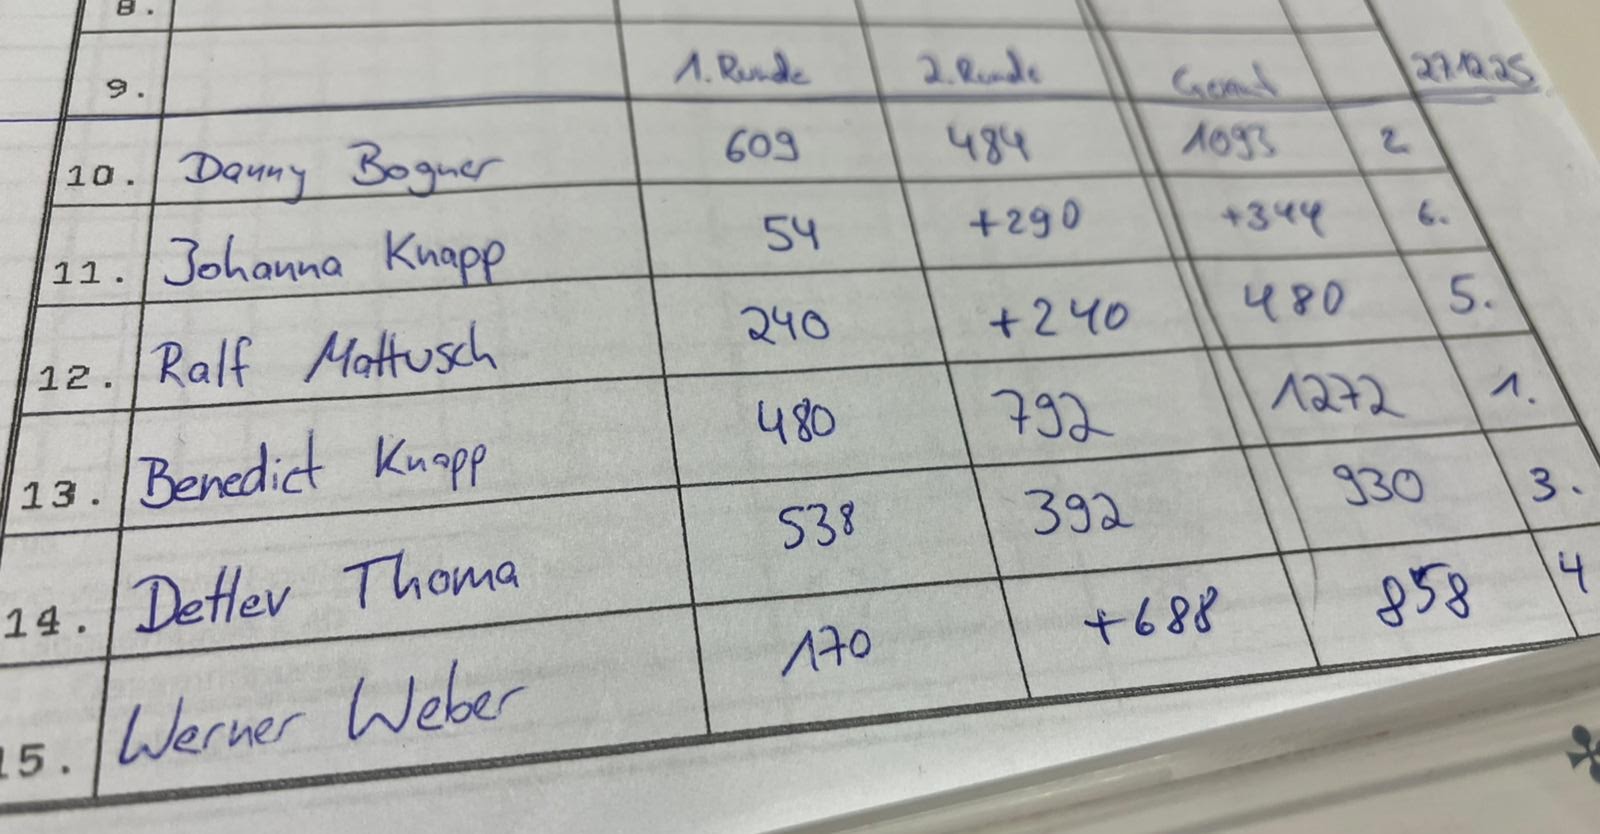 8.
9. 1. Runde 2. Runde Gesamt 27.12.25
10. Danny Bogner 609 484 1093 2
11. Johanna Knapp 54 +290 +344 6.
12. Ralf Mattusch 240 +240 480 5.
13. Benedict Knapp 480 792 1272 1.
14. Detlev Thoma 538 392 930 3.
15. Werner Weber 170 +688 858 4